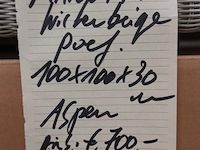 Wicker beige
poef.
100x100x30
Aspen
€ 700-